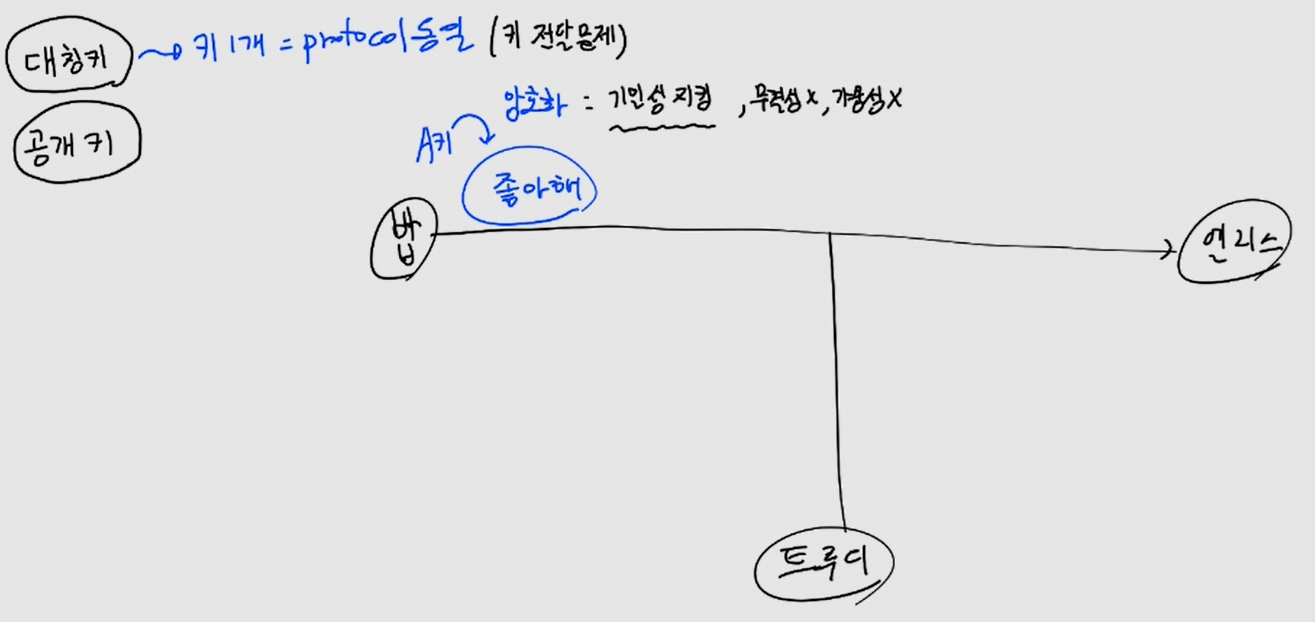 대칭키 → 키 1개 = protocol 동일 (키 전달문제)
공개키
암호화 : 기밀성 지킴, 무결성 X, 가용성 X
A키
좋아해
밥
엘리스
트루디